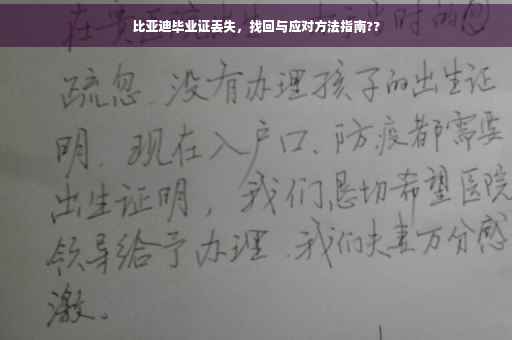 比亚迪毕业证丢失，找回与应对方法指南??
疏忽.没有办理孩子的出生证
明.现在入户口、防疫都需要
出生证明，我们恳切希望医院
领导给予办理.我们夫妻万分感
激。